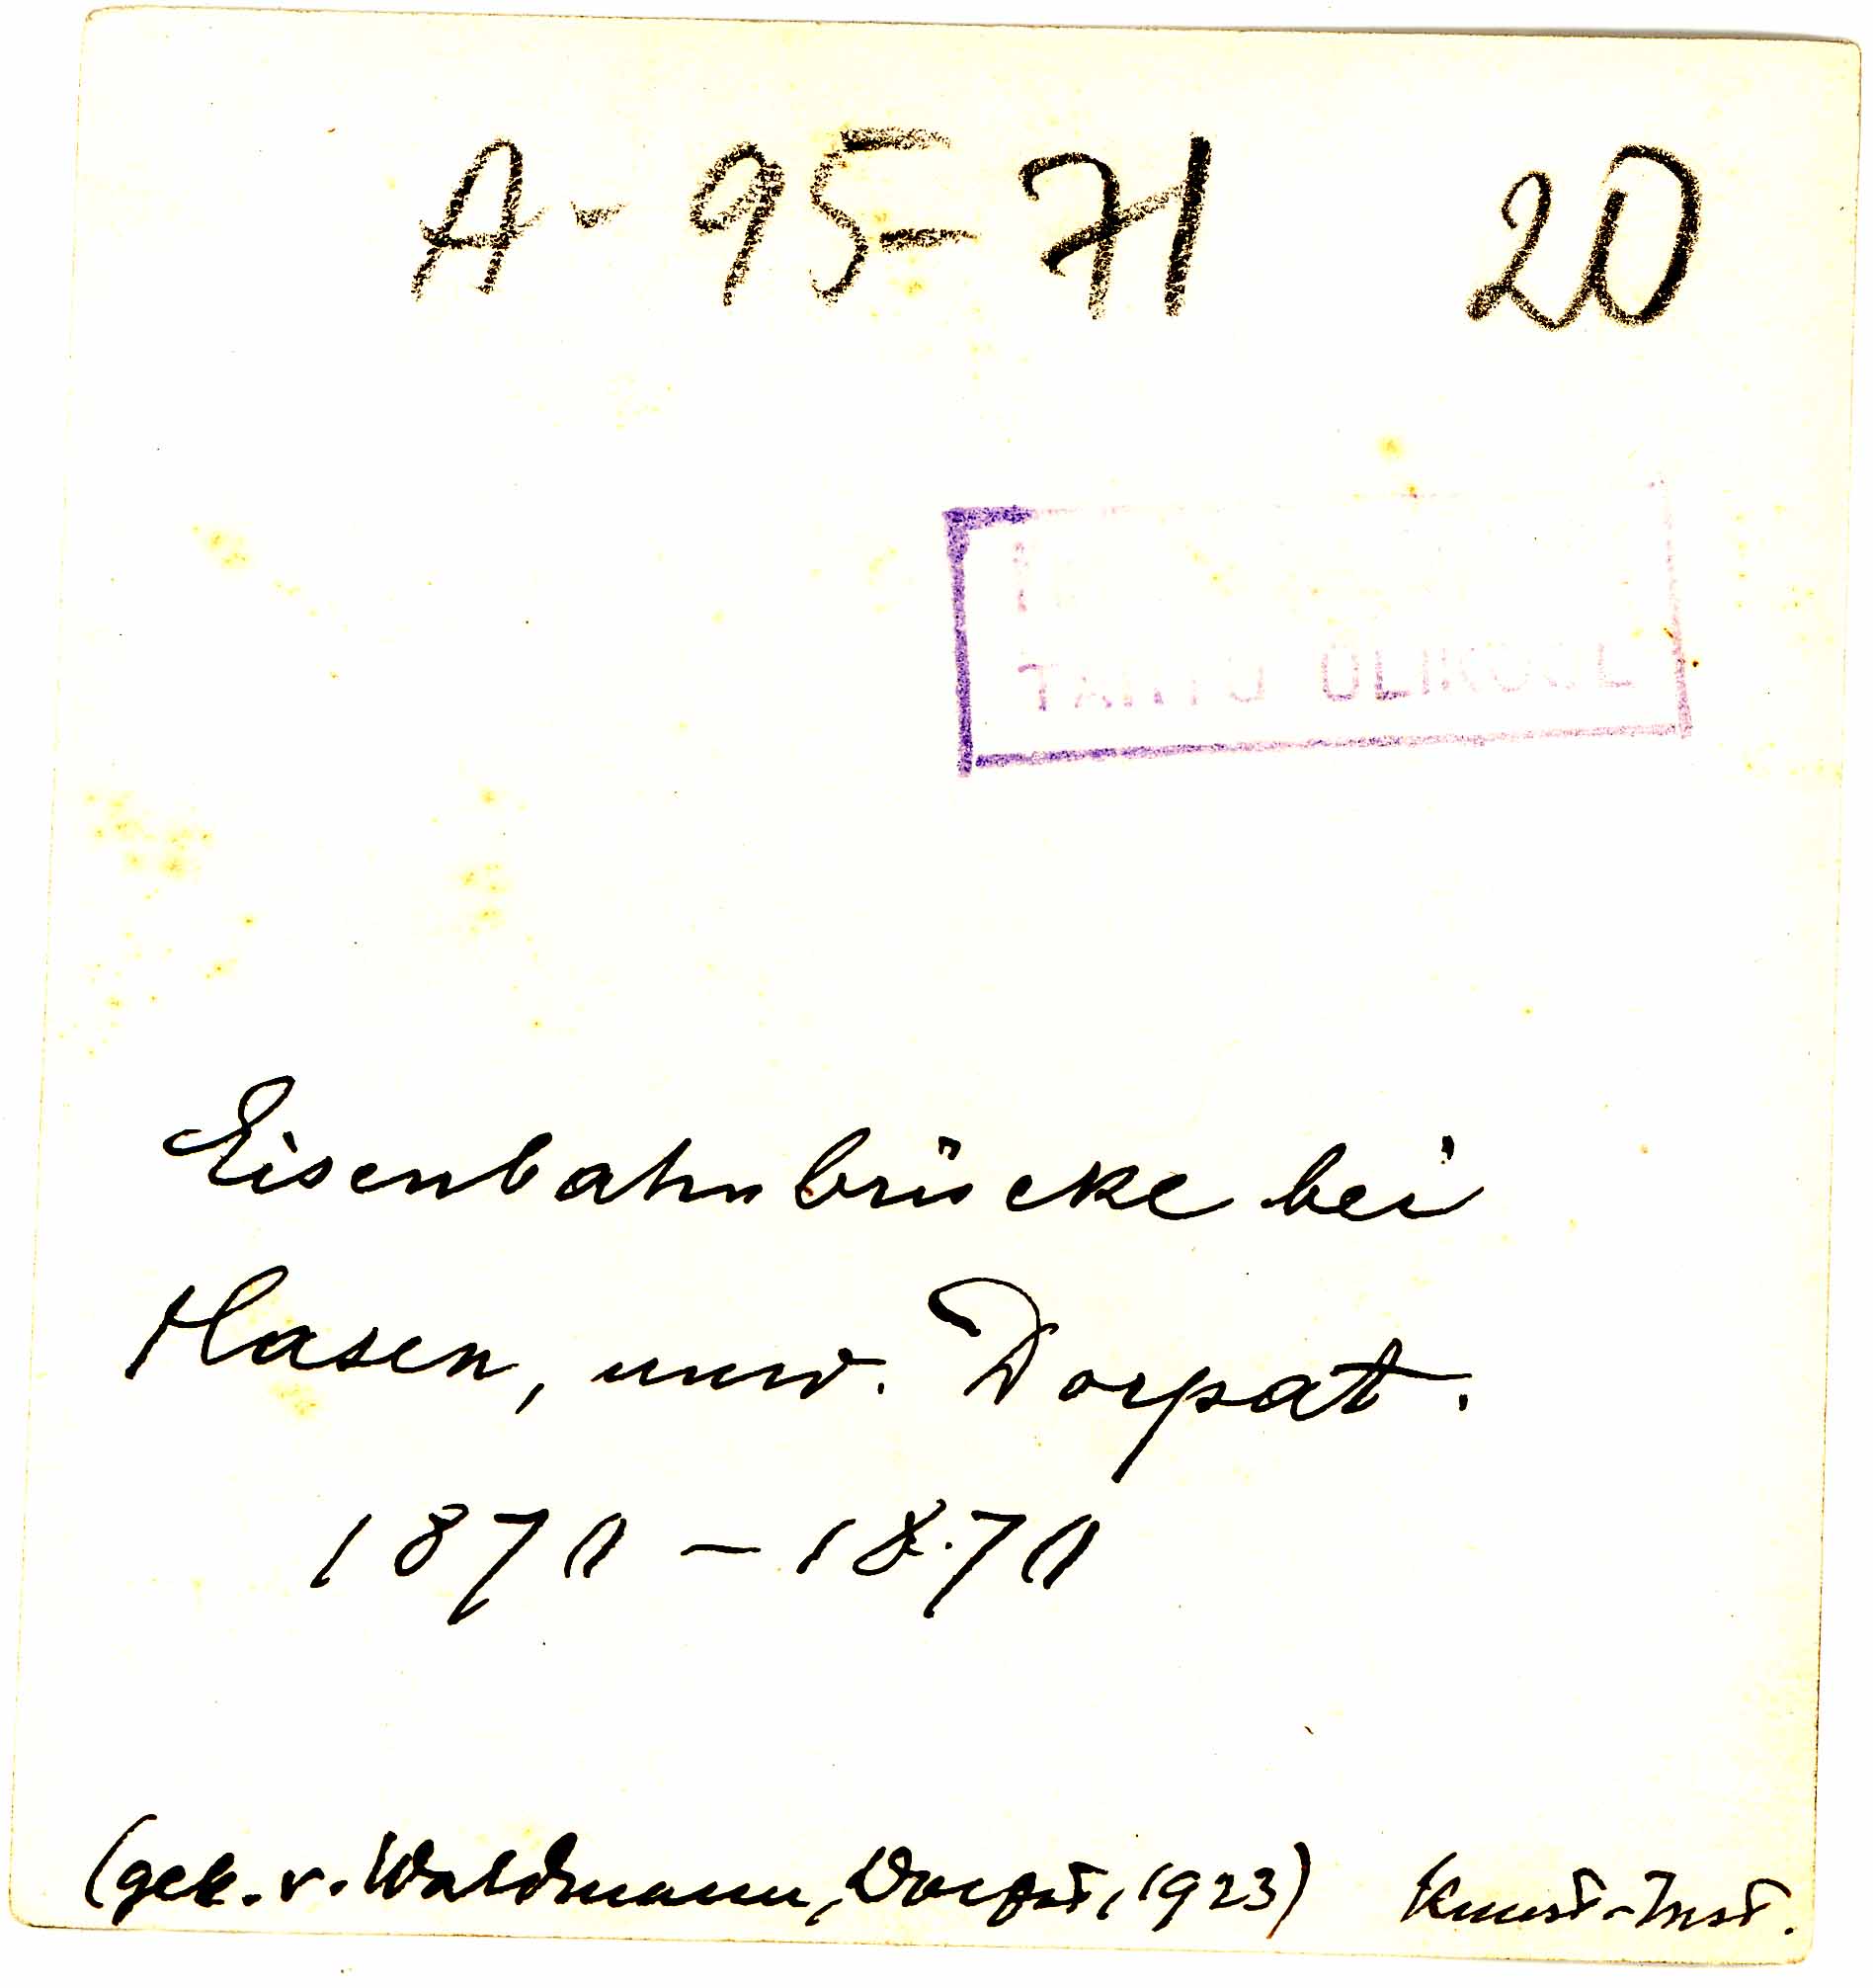 A-95-71 20
TARTU ÜLIKOOL
Eisenbahnbrücke bei
Hasen, unw. Dorpat.
1870 – 1870
(gek. v. Waldmann, Dorpat, 1923) Kunst-Inst.